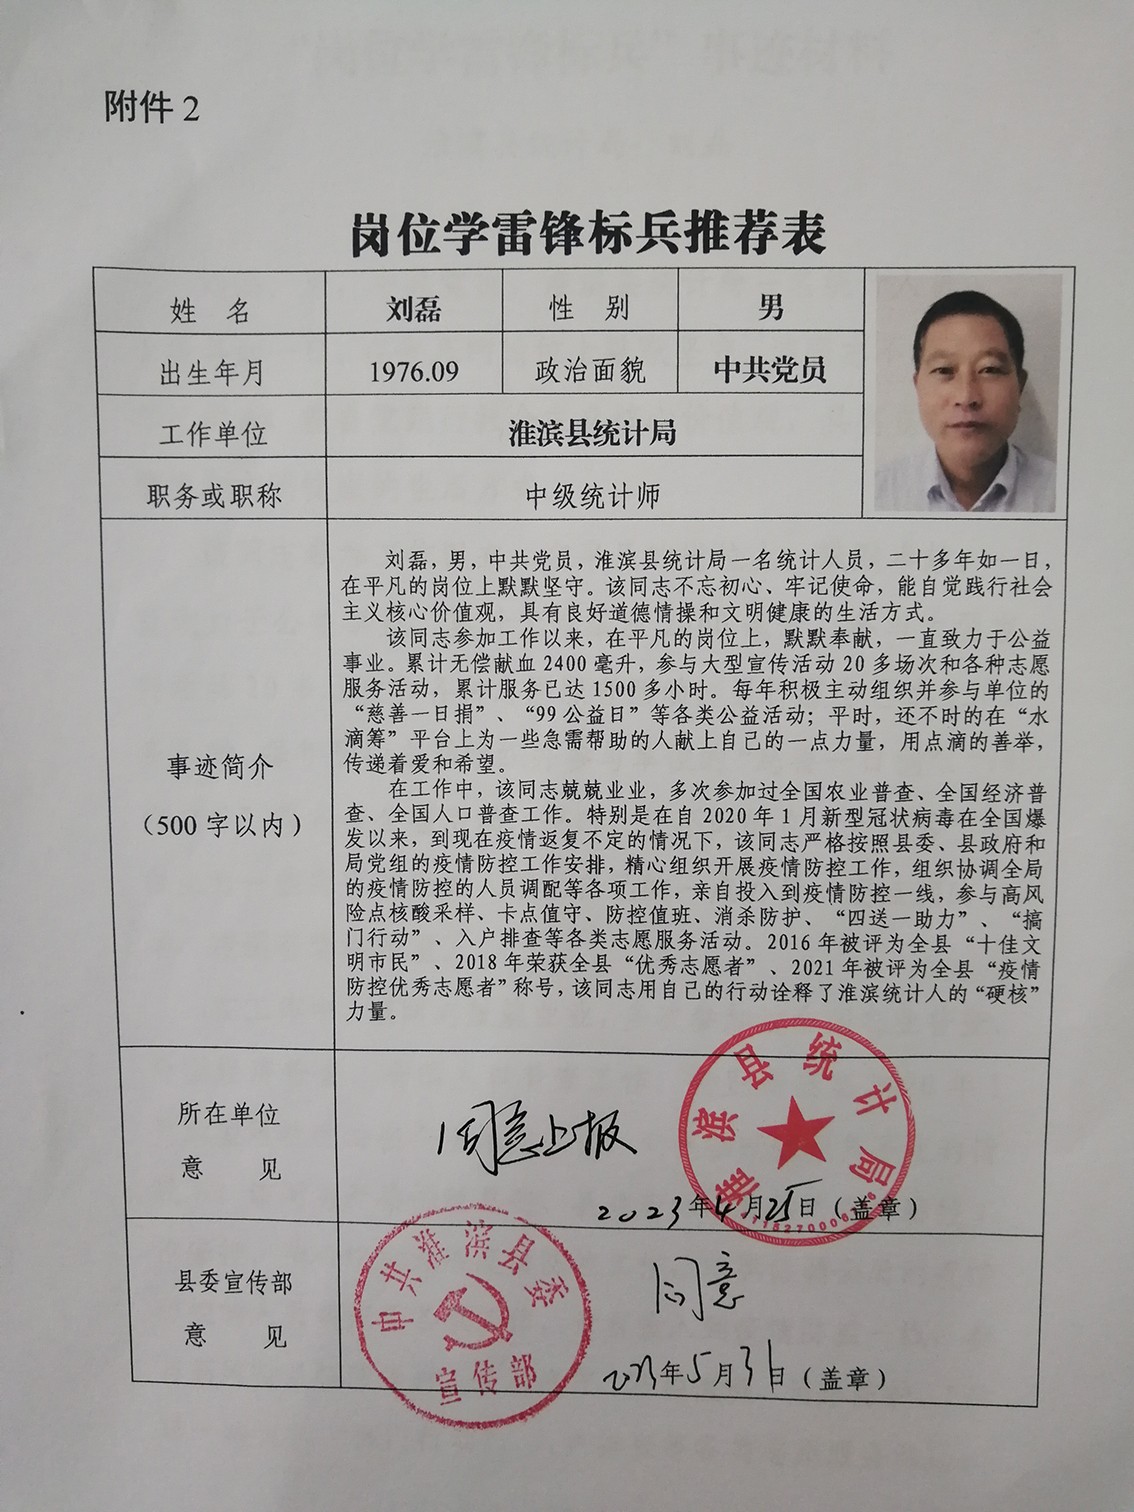 附件 2
岗位学雷锋标兵推荐表
姓 名 刘磊 性 别 男
出生年月 1976.09 政治面貌 中共党员
工作单位 淮滨县统计局
职务或职称 中级统计师
事迹简介
（500 字以内）
刘磊，男，中共党员，淮滨县统计局一名统计人员，二十多年如一日，
在平凡的岗位上默默坚守。该同志不忘初心、牢记使命，能自觉践行社会
主义核心价值观，具有良好道德情操和文明健康的生活方式。
该同志参加工作以来，在平凡的岗位上，默默奉献，一直致力于公益
事业。累计无偿献血 2400 毫升，参与大型宣传活动 20 多场次和各种志愿
服务活动，累计服务已达 1500 多小时。每年积极主动组织并参与单位的
“慈善一日捐”、“99 公益日”等各类公益活动；平时，还不时的在“水
滴筹”平台上为一些急需帮助的人献上自己的一点力量，用点滴的善举，
传递着爱和希望。
在工作中，该同志兢兢业业，多次参加过全国农业普查、全国经济普
查、全国人口普查工作。特别是在自 2020 年 1 月新型冠状病毒在全国爆
发以来，到现在疫情返复不定的情况下，该同志严格按照县委、县政府和
局党组的疫情防控工作安排，精心组织开展疫情防控工作，组织协调全局
的疫情防控的人员调配等各项工作，亲自投入到疫情防控一线，参与高风
险点核酸采样、卡点值守、防控值班、消杀防护、“四送一助力”、“搞
门行动”、入户排查等各类志愿服务活动。2016 年被评为全县“十佳文
明市民”、2018 年荣获全县“优秀志愿者”、2021 年被评为全县“疫情
防控优秀志愿者”称号，该同志用自己的行动诠释了淮滨统计人的“硬核”
力量。
所在单位
意 见
同意上报
淮滨县统计局
2023年4月25日（盖章）
县委宣传部
意 见
中共淮滨县委
宣传部
同意
2023年5月31日（盖章）